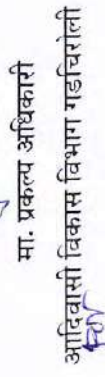 मा. प्रकल्प अधिकारी
आदिवासी विकास विभाग गडचिरोली